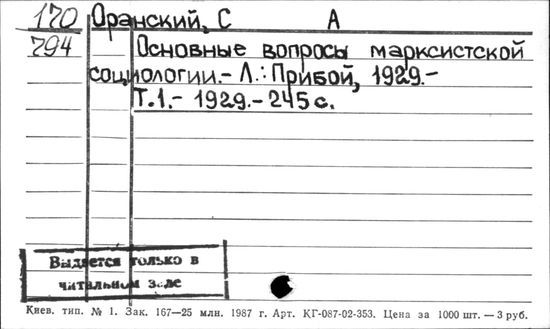 170 Оранский, С А
794 Основные вопросы марксистской
социологии.- Л.: Прибой, 1929.-
Т.1.- 1929.- 245 с.
Выдается только в
читальном зале
Киев. тип. № 1. Зак. 167—25 млн. 1987 г. Арт. КГ-087-02-353. Цена за 1000 шт. — 3 руб.